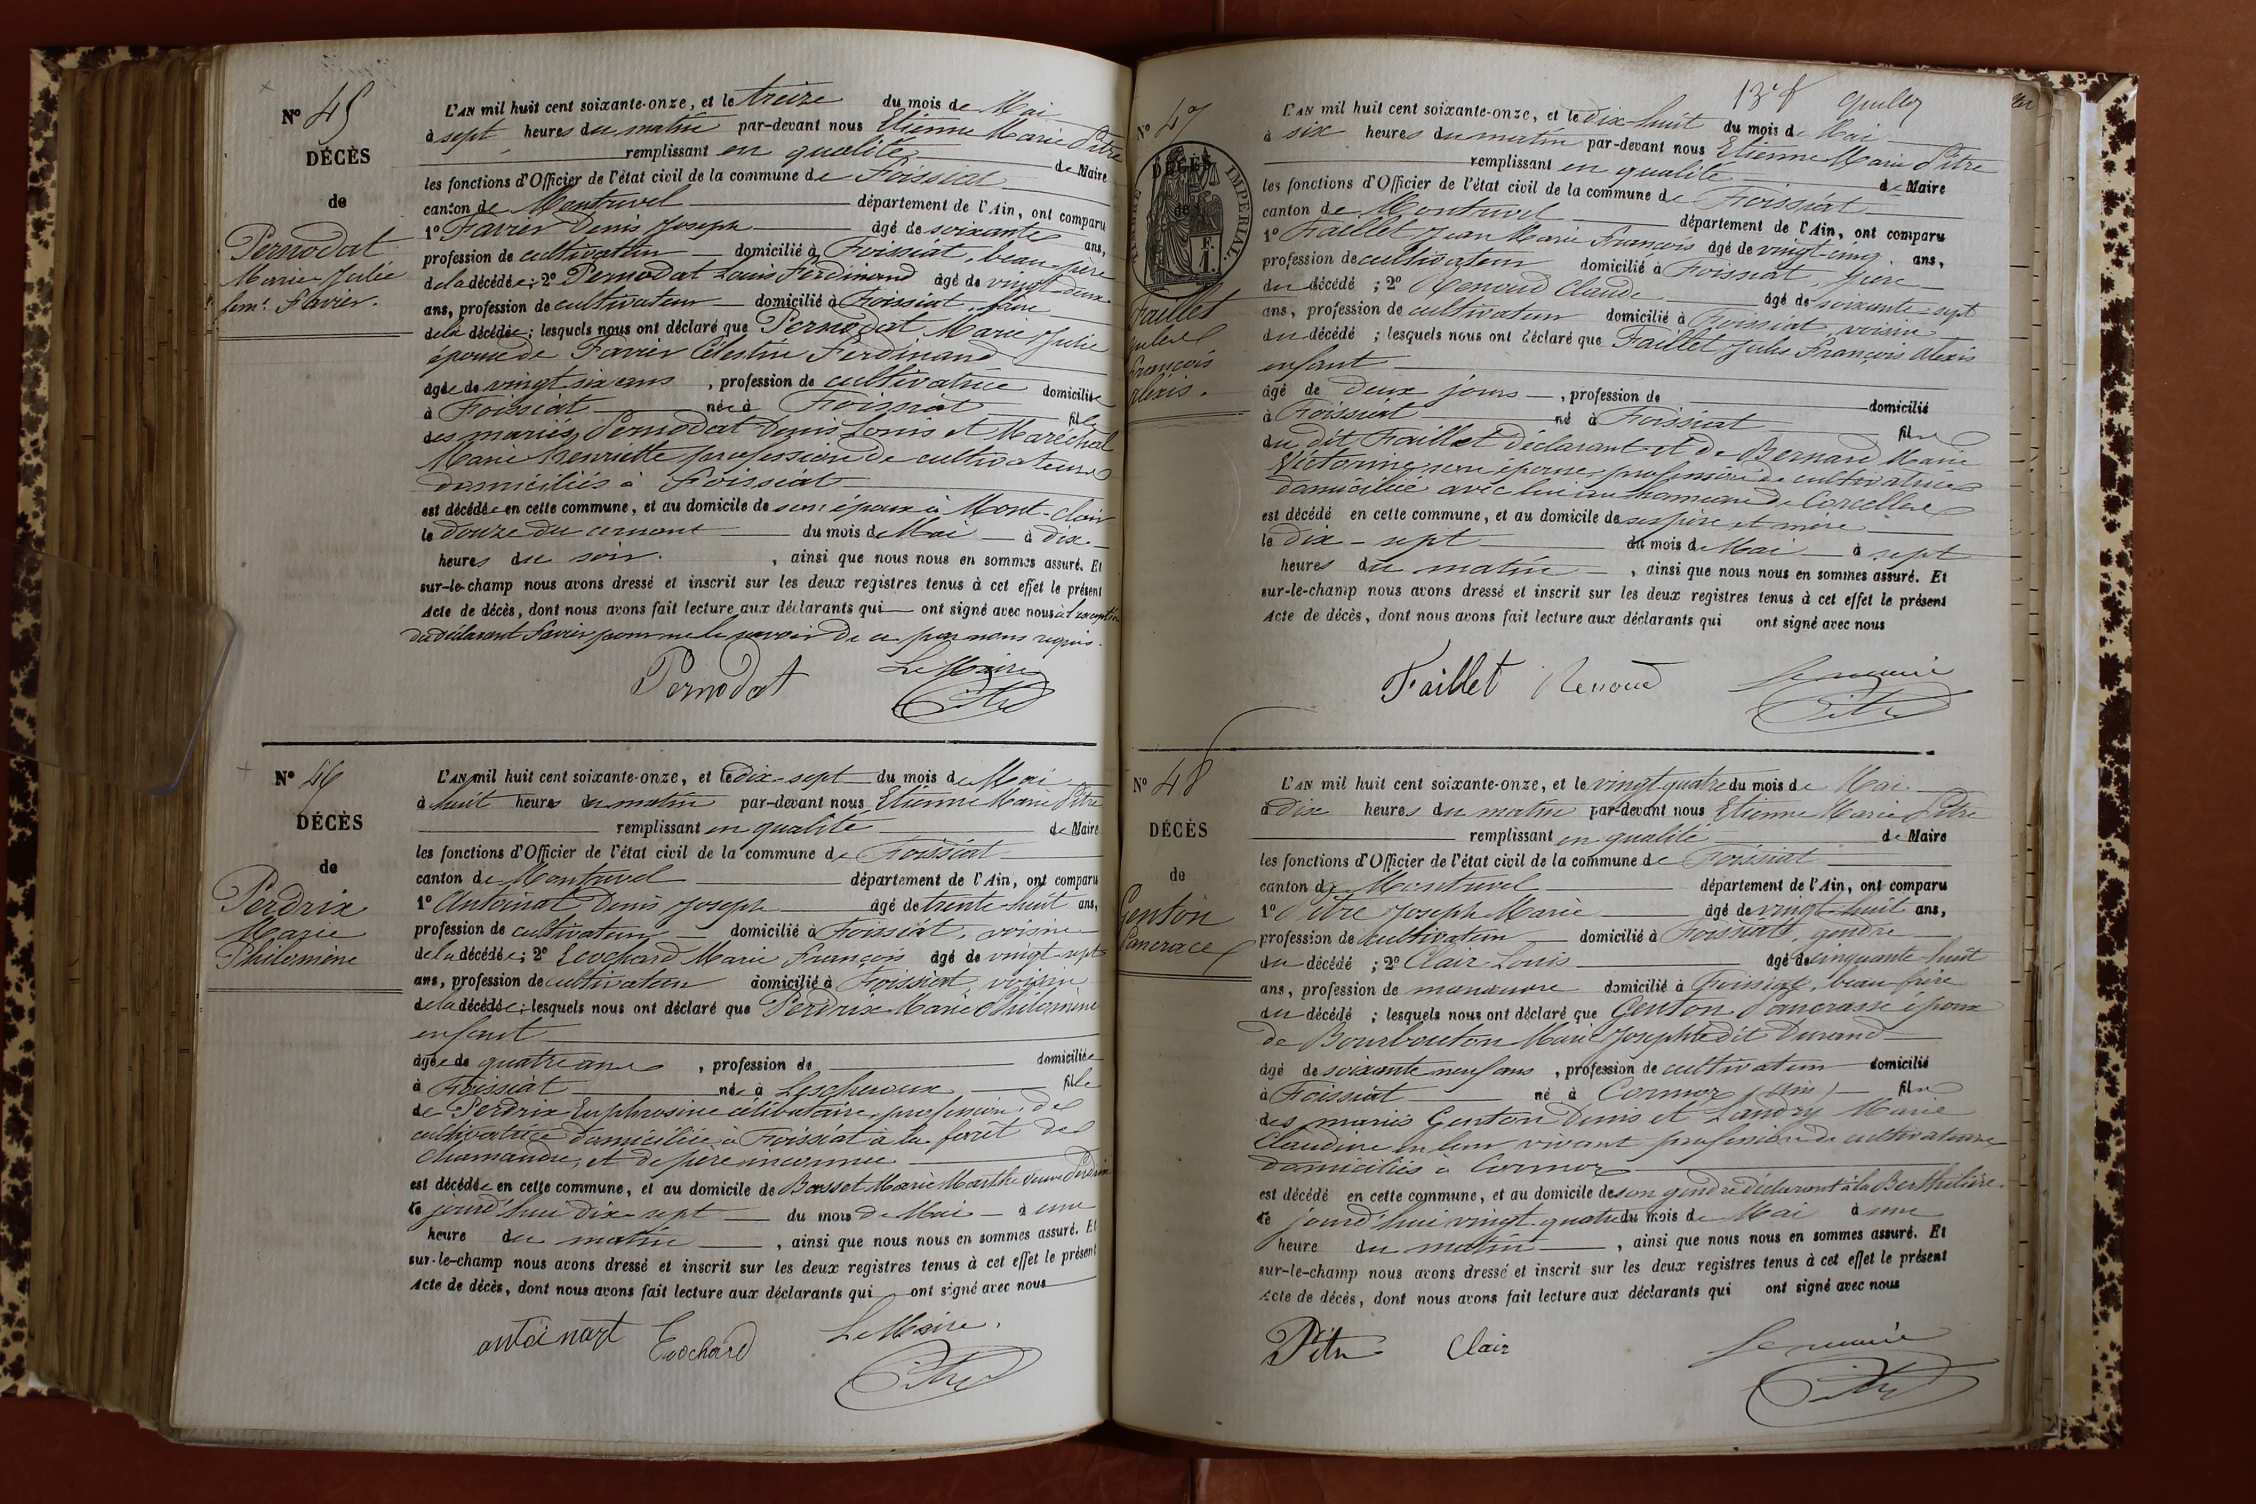 N° 45
DÉCÈS
de
Pernodat
Marie Julie
fem.e Favier.
L'AN mil huit cent soixante-onze, et le treize du mois de Mai
à sept heures du matin par-devant nous Etienne Marie Pitre
remplissant en qualité de Maire
les fonctions d'Officier de l'état civil de la commune de Foissiat
canton de Montrevel département de l'Ain, ont comparu
1° Favier Denis Joseph âgé de soixante ans,
profession de cultivateur domicilié à Foissiat, beau-père
de la décédée; 2° Pernodat Louis Ferdinand âgé de vingt-deux
ans, profession de cultivateur domicilié à Foissiat, frère
de la décédée; lesquels nous ont déclaré que Pernodat Marie Julie
épouse de Favier Célestin Ferdinand
âgée de vingt six ans, profession de cultivatrice domiciliée
à Foissiat née à Foissiat fille
des mariés Pernodat Denis Louis et Maréchal
Marie Henriette profession de cultivateurs
domiciliés à Foissiat
est décédée en cette commune, et au domicile de son époux à Mont-Clair
le douze du courant du mois de Mai à dix
heures du soir, ainsi que nous nous en sommes assuré. Et
sur-le-champ nous avons dressé et inscrit sur les deux registres tenus à cet effet le présent
Acte de décès, dont nous avons fait lecture aux déclarants qui ont signé avec nous à l'exception
du déclarant Favier pour ne le savoir de ce par nous requis.
Pernodat Le Maire
Pitre
N° 46
DÉCÈS
de
Perdrix
Marie
Philomène
L'AN mil huit cent soixante-onze, et le dix-sept du mois de Mai
à huit heures du matin par-devant nous Etienne Marie Pitre
remplissant en qualité de Maire
les fonctions d'Officier de l'état civil de la commune de Foissiat
canton de Montrevel département de l'Ain, ont comparu
1° Antoinat Denis Joseph âgé de trente-huit ans,
profession de cultivateur domicilié à Foissiat, voisin
de la décédée; 2° Ecochard Marie François âgé de vingt-sept
ans, profession de cultivateur domicilié à Foissiat, voisin
de la décédée; lesquels nous ont déclaré que Perdrix Marie Philomène
enfant
âgée de quatre ans, profession de domiciliée
à Foissiat née à Lescheroux fille
de Perdrix Euphrosine célibataire, profession de
cultivatrice domiciliée à Foissiat à la forêt de
Chamandre, et de père inconnu
est décédée en cette commune, et au domicile de Basset Marie Marthe veuve Perdrix
le jourd'hui dix-sept du mois de Mai à une
heure du matin, ainsi que nous nous en sommes assuré. Et
sur-le-champ nous avons dressé et inscrit sur les deux registres tenus à cet effet le présent
Acte de décès, dont nous avons fait lecture aux déclarants qui ont signé avec nous
antoinart Ecochard Le Maire.
Pitre
13e f
N° 47
DÉCÈS
de
TIMBRE IMPÉRIAL
1 F.
Faillet
Jules
François
Alexis.
L'AN mil huit cent soixante-onze, et le dix-huit du mois de Mai
à six heures du matin par-devant nous Etienne Marie Pitre
remplissant en qualité de Maire
les fonctions d'Officier de l'état civil de la commune de Foissiat
canton de Montrevel département de l'Ain, ont comparu
1° Faillet Jean Marie François âgé de vingt-cinq ans,
profession de cultivateur domicilié à Foissiat, père
du décédé; 2° Renoud Claude âgé de soixante-sept
ans, profession de cultivateur domicilié à Foissiat, voisin
du décédé; lesquels nous ont déclaré que Faillet Jules François Alexis
enfant
âgé de deux jours, profession de domicilié
à Foissiat né à Foissiat fils
du dit Faillet déclarant et de Bernard Marie
Victorine son épouse, profession de cultivatrice
domiciliée avec lui au hameau de Corcelles
est décédé en cette commune, et au domicile de ses père et mère
le dix-sept du mois de Mai à sept
heures du matin, ainsi que nous nous en sommes assuré. Et
sur-le-champ nous avons dressé et inscrit sur les deux registres tenus à cet effet le présent
Acte de décès, dont nous avons fait lecture aux déclarants qui ont signé avec nous
Faillet Renoud Le maire
Pitre
N° 48
DÉCÈS
de
Genton
Pancrace
L'AN mil huit cent soixante-onze, et le vingt-quatre du mois de Mai
à dix heures du matin par-devant nous Etienne Marie Pitre
remplissant en qualité de Maire
les fonctions d'Officier de l'état civil de la commune de Foissiat
canton de Montrevel département de l'Ain, ont comparu
1° Pitre Joseph Marie âgé de vingt-huit ans,
profession de cultivateur domicilié à Foissiat, gendre
du décédé; 2° Clair Louis âgé de cinquante huit
ans, profession de manœuvre domicilié à Foissiat, beau-frère
du décédé; lesquels nous ont déclaré que Genton Pancrasse époux
de Bourbouton Marie Josephte dit Durand
âgé de soixante neuf ans, profession de cultivateur domicilié
à Foissiat né à Cormoz (Ain) fils
des mariés Genton Denis et Landry Marie
Claudine en leur vivant profession de cultivateurs
domiciliés à Cormoz
est décédé en cette commune, et au domicile de son gendre déclarant à la Berthilière.
le jourd'hui vingt-quatre du mois de Mai à une
heure du matin, ainsi que nous nous en sommes assuré. Et
sur-le-champ nous avons dressé et inscrit sur les deux registres tenus à cet effet le présent
Acte de décès, dont nous avons fait lecture aux déclarants qui ont signé avec nous
Pitre Clair Le maire
Pitre